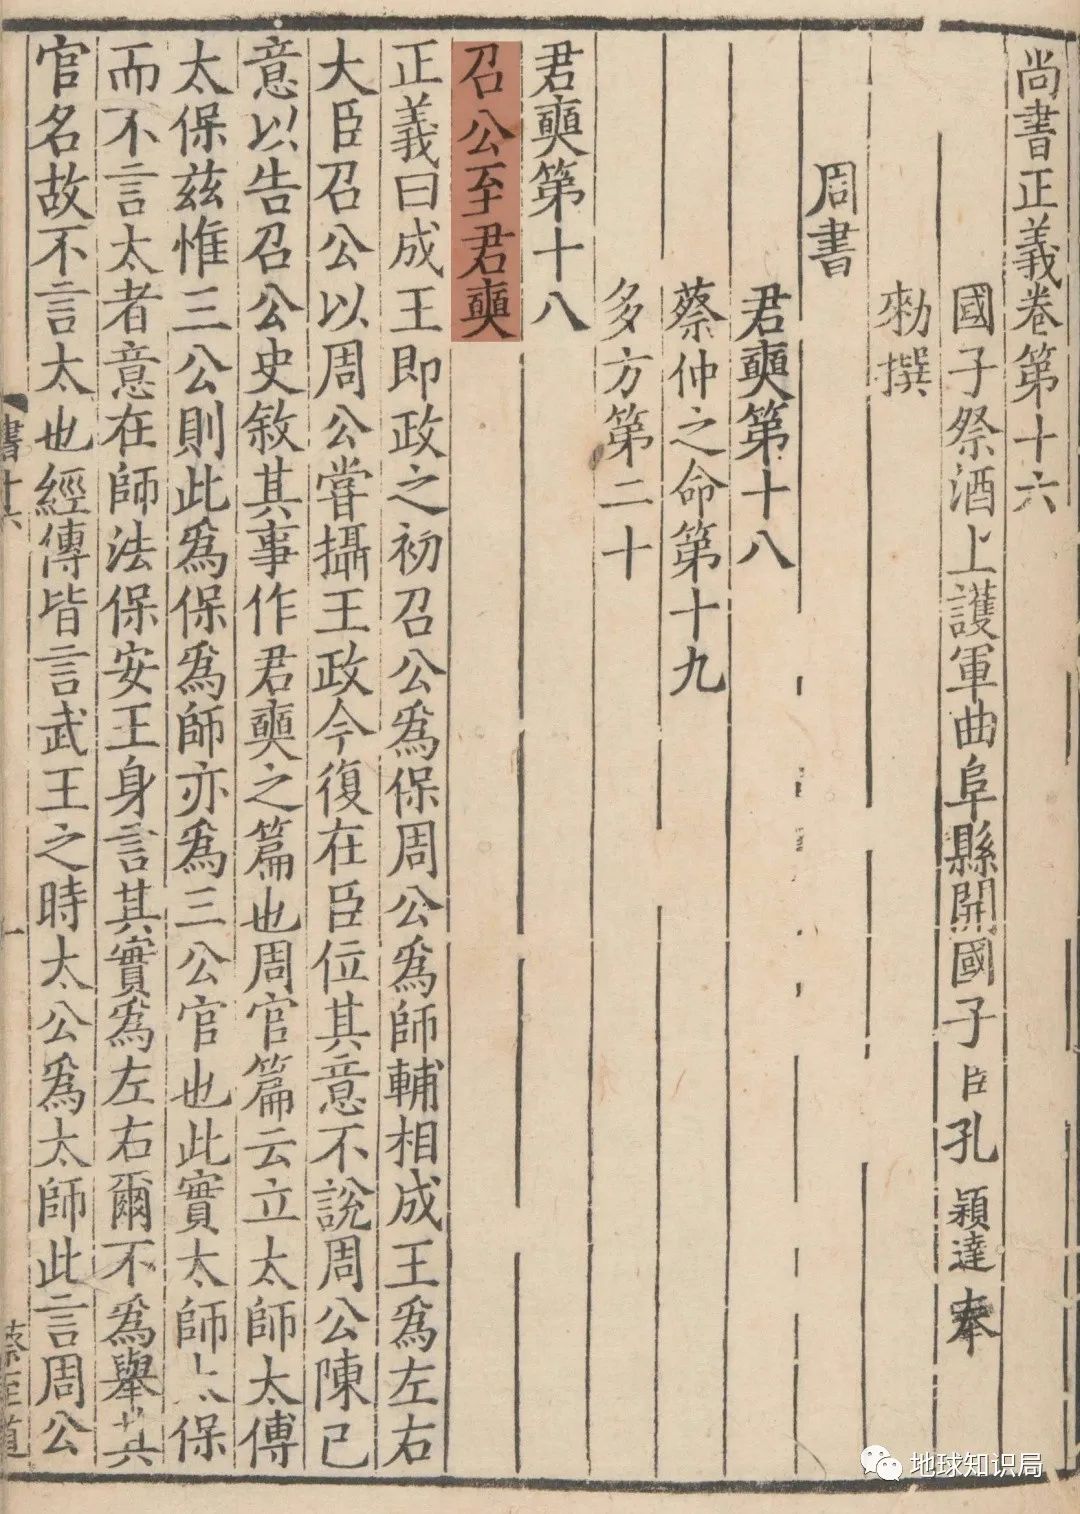 尚書正義卷第十六
國子祭酒上護軍曲阜縣開國子臣孔穎達奉
勑撰
周書
君奭第十八
蔡仲之命第十九
多方第二十
君奭第十八
召公至君奭
正義曰成王即政之初召公爲保周公爲師輔相成王爲左右
大臣召公以周公嘗攝王政今復在臣位其意不說周公陳己
意以告召公史敘其事作君奭之篇也周官篇云立太師太傅
太保茲惟三公則此爲保爲師亦爲三公官也此實太師太保
而不言太者意在師法保安王身言其實爲左右爾不爲舉其
官名故不言太也經傳皆言武王之時太公爲太師此言周公
書十六
一
蔡至道
地球知识局